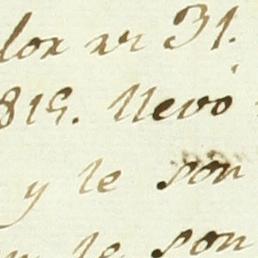 lon nr 31.
819. llevó
y le son
le son